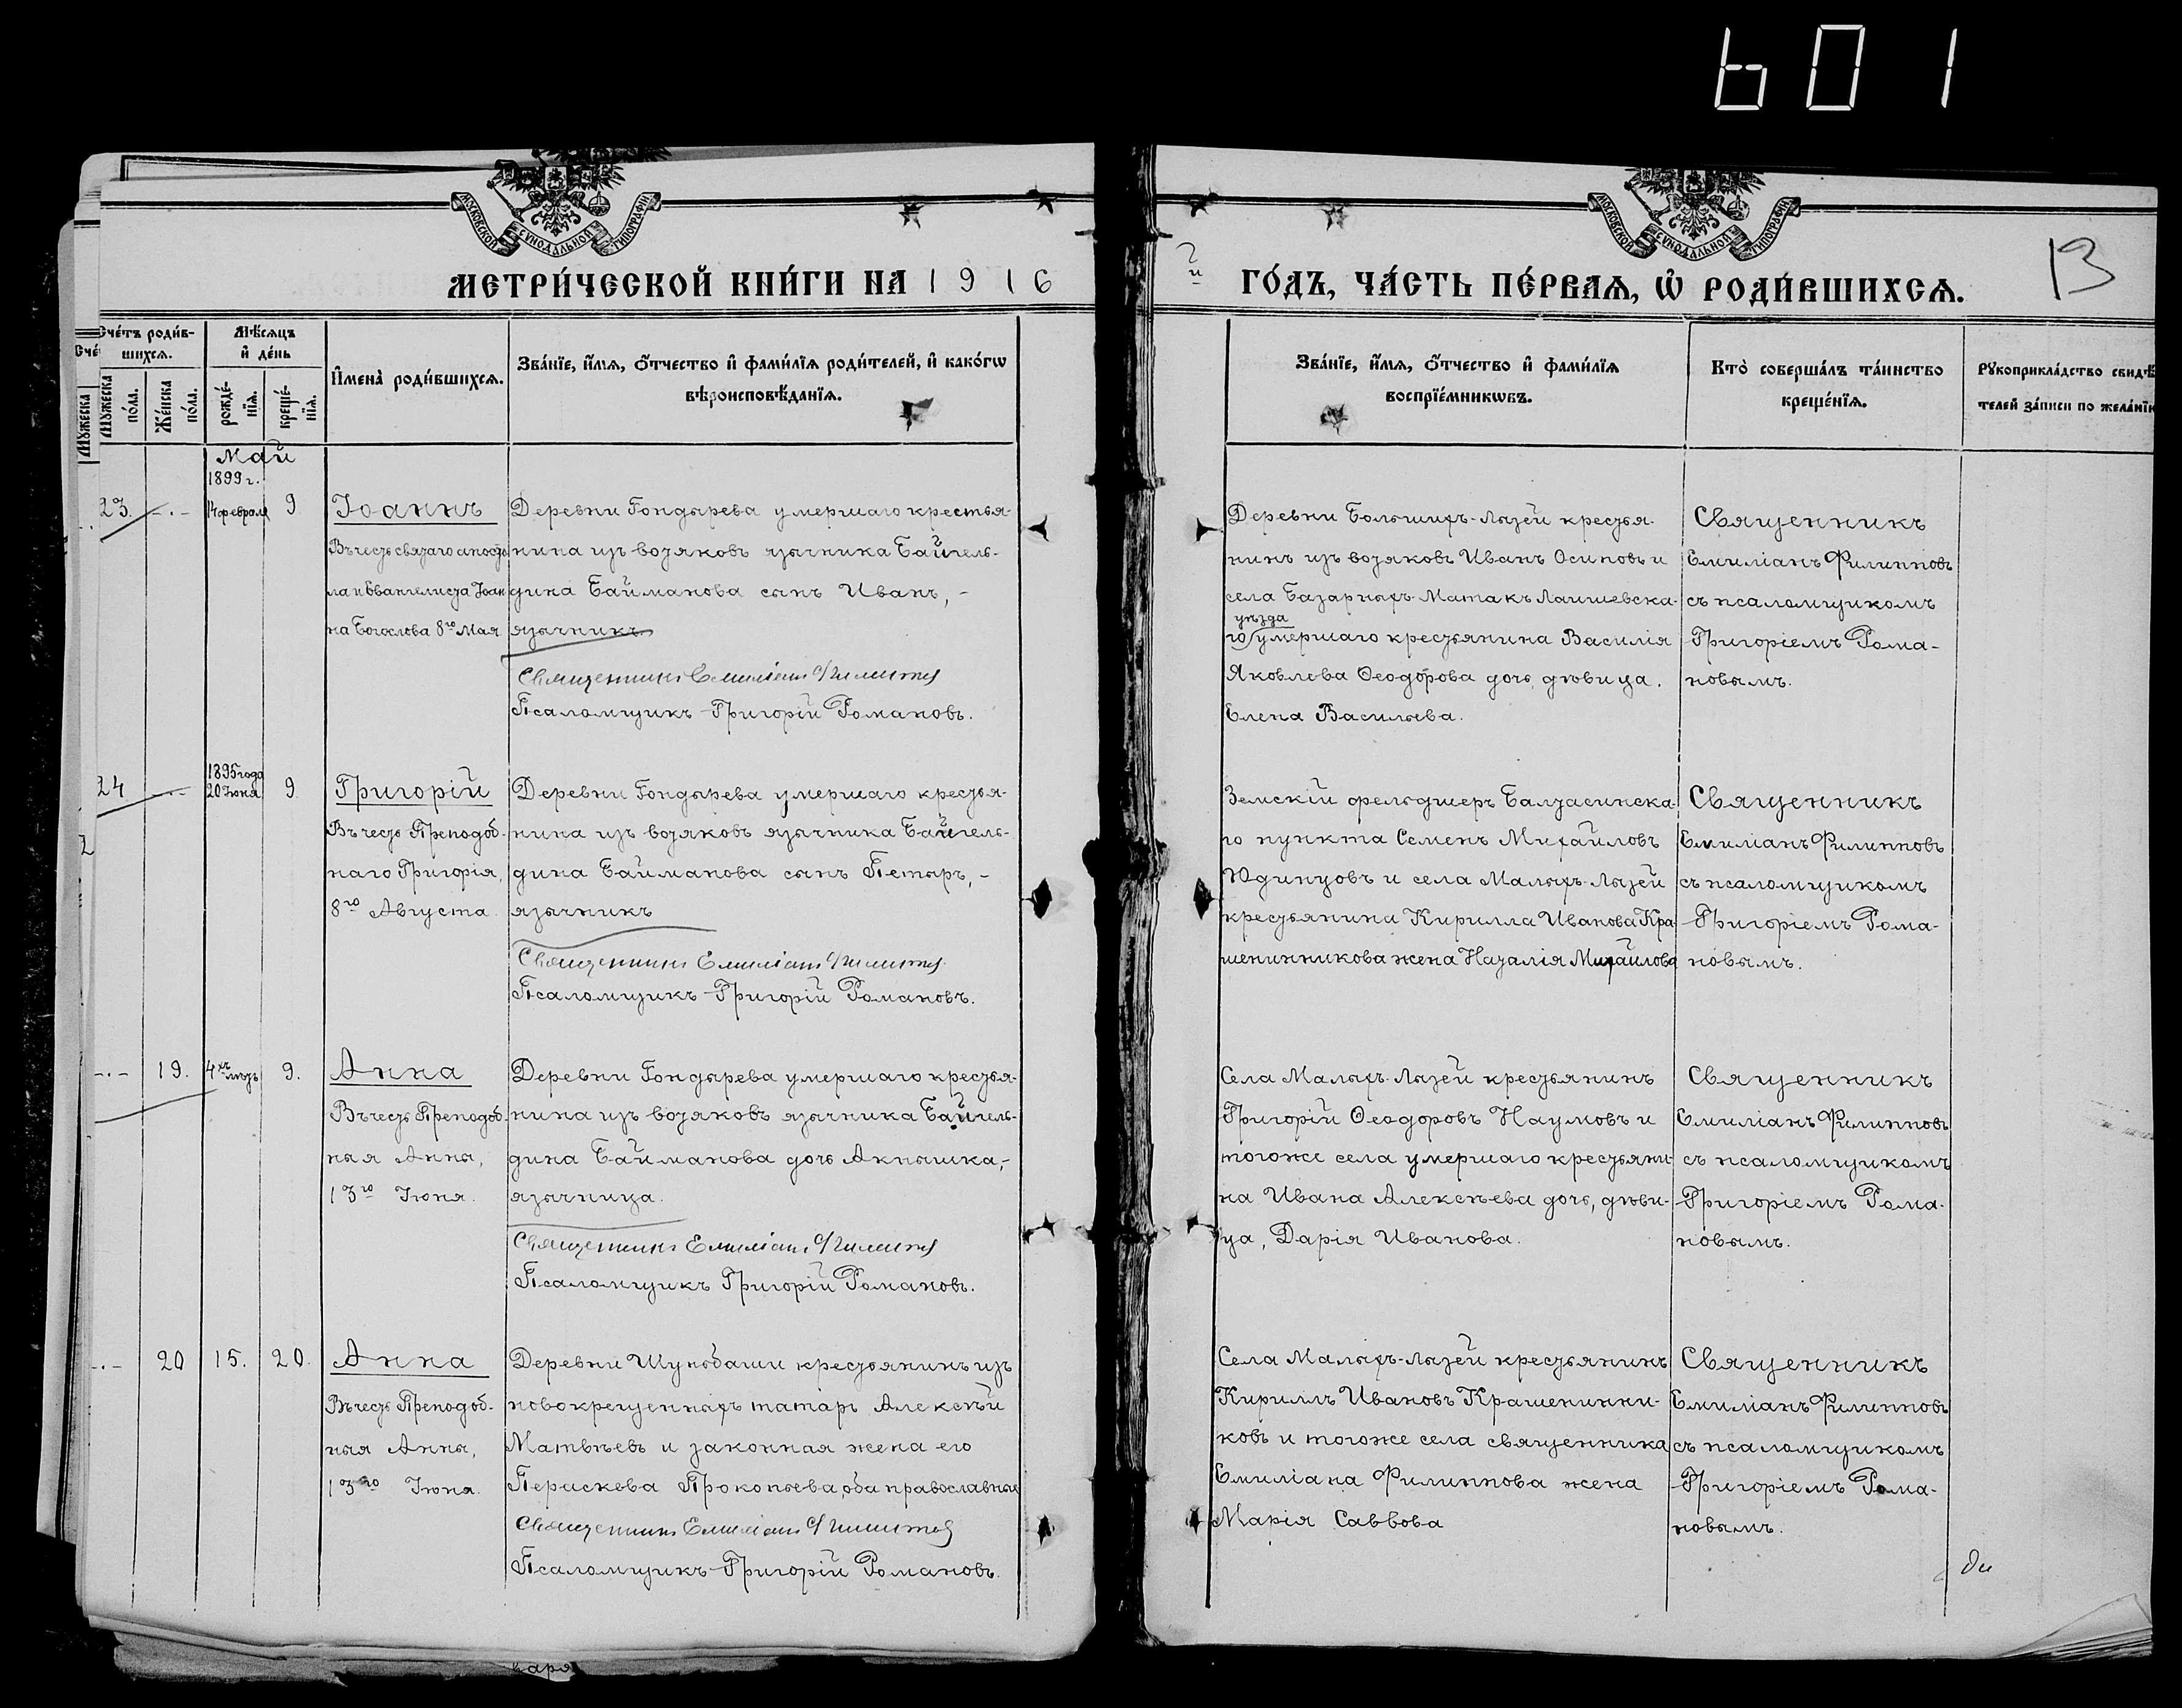 601
МОСКОВСКОЙ СѴНОДАЛЬНОЙ ТИПОГРАФІИ
МОСКОВСКОЙ СѴНОДАЛЬНОЙ ТИПОГРАФІИ
МЕТРИ́ЧЕСКОЙ КНИ́ГИ НА 1916
й ГО́ДЪ, ЧА́СТЬ ПЕ́РВАѦ, Ѡ҆ РОДИ́ВШИХСѦ.
13
Сче́тъ роди́в-
шихсѧ.
Мꙋжеска по́ла.
Же́нска по́ла.
Мѣ́сѧцъ
и҆ де́нь
рожде́-
нїѧ.
креще́-
нїѧ.
И҆мена̀ роди́вшихсѧ.
Зва́нїе, и҆́мѧ, ѻ҆́тчество и҆ фами́лїѧ роди́телей, и҆ како́гѡ
вѣроисповѣ́данїѧ.
Зва́нїе, и҆́мѧ, ѻ҆́тчество и҆ фами́лїѧ
воспрїе́мникѡвъ.
Кто̀ соверша́лъ та́инство
креще́нїѧ.
Рꙋкоприкла́дство свидѣ́-
телей за́писи по жела́нїю
Май
1899 г.
23. -.- 14 февраля 9
Іоаннъ
Въ честь святаго апосто-
ла и Евангелиста Іоан
на Богослова 8го Мая
Деревни Гондырева умершаго крестья-
нина изъ вотяковъ язычника Байгель-
дина Байманова сынъ Иванъ, -
язычникъ
Священникъ Емиліанъ Филиппов
Псаломщикъ Григорій Романовъ.
Деревни Большихъ-Лызей крестья-
нинъ изъ вотяковъ Иванъ Осиповъ и
села Базарныхъ-Матакъ Лаишевска-
уѣзда
го умершаго крестьянина Василія
Яковлева Ѳеодорова дочь, дѣвица.
Елена Васильева.
Священникъ
Емиліанъ Филипповъ
съ псаломщикомъ
Григоріемъ Рома-
новымъ.
24 -.- 1895 года
20 Іюня 9
Григорій
Въ честь Преподоб-
наго Григорія,
8го Августа.
Деревни Гондырева умершаго крестья-
нина изъ вотяковъ язычника Байгель-
дина Байманова сынъ Петыръ, -
язычникъ
Священникъ Емиліанъ Филиппов
Псаломщикъ Григорій Романовъ.
Земскій фельдшеръ Балтасинска-
го пункта Семенъ Михайловъ
Юдинцовъ и села Малыхъ-Лызей
крестьянина Кирилла Иванова Кра-
шенинникова жена Наталія Михайлова
Священникъ
Емиліанъ Филипповъ
съ псаломщикомъ
Григоріемъ Рома-
новымъ.
-.- 19. 4хъ лѣтъ 9.
Анна
Въ честь Преподоб-
ныя Анны,
13го Іюня.
Деревни Гондырева умершаго крестья-
нина изъ вотяковъ язычника Байгель-
дина Байманова дочь Акпышка, -
язычница.
Священникъ Емиліанъ Филиппов
Псаломщикъ Григорій Романовъ.
Села Малыхъ-Лызей крестьянинъ
Григорій Ѳеодоровъ Наумовъ и
тогоже села умершаго крестьяни-
на Ивана Алексѣева дочь, дѣви-
ца, Дарія Иванова.
Священникъ
Емиліанъ Филипповъ
съ псаломщикомъ
Григоріемъ Рома-
новымъ.
-.- 20 15. 20.
Анна
Въ честь Преподоб-
ныя Анны,
13го Іюня.
Деревни Шунобаши крестьянинъ изъ
новокрещенныхъ татаръ Алексѣй
Матвѣевъ и законная жена его
Перискева Прокопьева, оба православные
Священникъ Емиліанъ Филиппов
Псаломщикъ Григорій Романовъ.
Села Малыхъ-Лызей крестьянинъ
Кириллъ Ивановъ Крашенинни-
ковъ и тогоже села священника
Емиліана Филиппова жена
Марія Саввова
Священникъ
Емиліанъ Филипповъ
съ псаломщикомъ
Григоріемъ Рома-
новымъ.